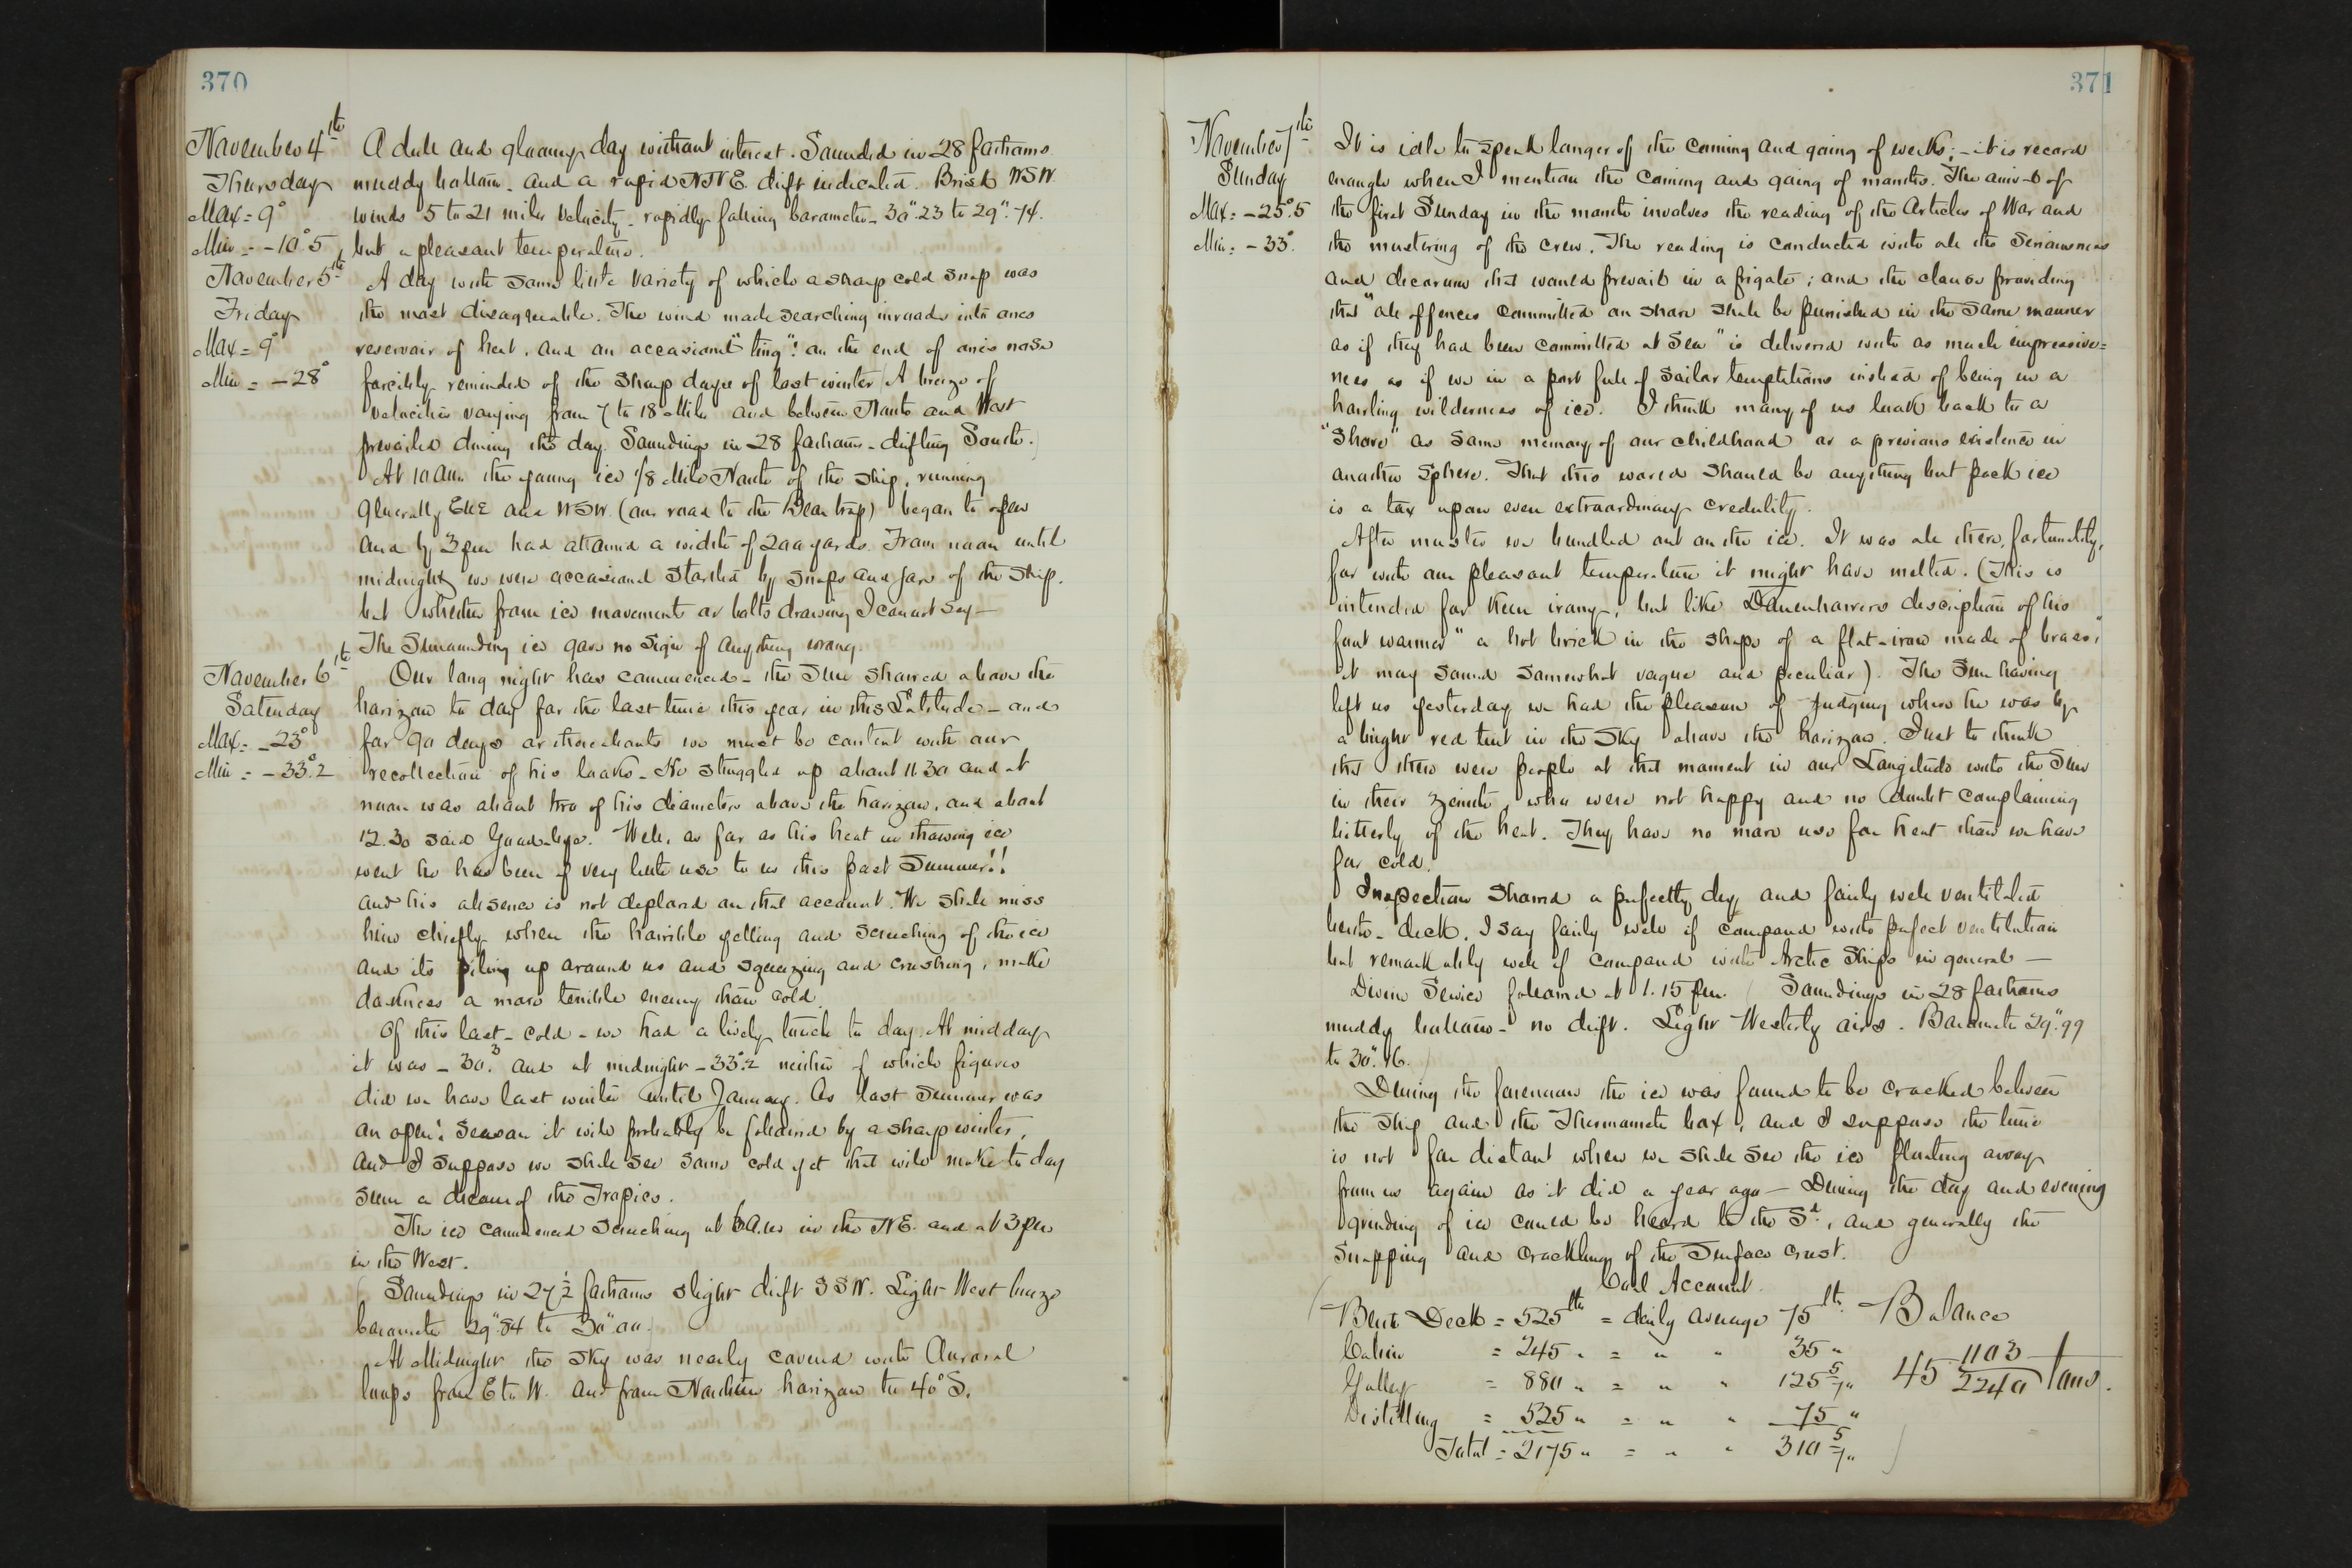 370
November 4th
Thursday
Max = 9°
Min = -10°.5
A dull and gloomy day without interest. Sounded in 28 fathoms
muddy bottom. and a rapid NNE. drift indicated. Brisk WSW.
winds 5 to 21 miles velocity - rapidly falling barometer - 30".23 to 29".74.
but a pleasant temperature.
November 5th
Friday
Max = 9°
Min = -28°
A day with some little variety of which a sharp cold snap was
the most disagreeable. The wind made searching inroads into ones
reservoir of heat, and an occasional "ting"! on the end of ones nose
forcibly reminded of the sharp days of last winter (A breeze of
velocities varying from 7 to 18 miles and between North and West
prevailed during the day. Soundings in 28 fathoms - drifting South.)
At 10 a.m. the young ice 1/8 Mile North of the ship, running
generally ENE and WSW. (our road to the Bear trap) began to open
and by 3 pm had attained a width of 200 yards. From noon until
midnight we were occasional startled by snaps and jars of the ship.
but whether from ice movements or bolts drawing I cannot say -
The Surrounding ice gave no sign of anything wrong.
November 6th
Saturday
Max = -23°
Min = -33°.2
Our long night has commenced - the Sun showed above the
horizon to day for the last time this year in this Latitude - and
for 90 days or thereabouts we must be content with our
recollection of his looks. He struggled up about 11.30 and at
noon was about two of his diameters above the horizon, and about
12.30 said Good-bye. Well, as far as his heat in thawing ice
went he has been of very little use to us this past Summer!!
and his absence is not deplored on that account. We shall miss
him chiefly when the horrible yelling and screeching of the ice
and its piling up around us and squeezing and crushing, make
darkness a more terrible enemy than cold.
Of this last - cold - we had a lively touch to day. At midday
it was - 30°.3 and at midnight - 33°.2 neither of which figures
did we have last winter until January. As last Summer was
an open: Season it will probably be followed by a sharp winter,
and I suppose we shall see some cold yet that will make to day
seem a dream of the Tropics.
The ice commenced screeching at 6 a.m. in the NE. and at 3 pm
in the West.
(Soundings in 27½ fathoms slight drift SSW. Light West breeze
barometer 29".84 to 30".00.)
At Midnight the sky was nearly covered with Auroral
loops from E to W. and from Northern horizon to 40° S.
371
November 7th
Sunday
Max = -25°.5
Min = -33°.
It is idle to speak longer of the coming and going of weeks; - it is record
enough when I mention the coming and going of months. The arrival of
the first Sunday in the month involves the reading of the Articles of War and
the mustering of the crew. The reading is conducted with all the seriousness
and decorum that would prevail in a frigate; and the clause providing
that "all offences committed on shore shall be punished in the same manner
as if they had been committed at Sea" is delivered with as much impressive=
ness as if we in a port full of sailor temptations instead of being in a
howling wilderness of ice. I think many of us look back to a
"Shore" as some memory of our childhood or a previous existence in
another sphere. That this world should be anything but pack ice
is a tax upon even extraordinary credulity.
After muster we bundled out on the ice. It was all there, fortunately,
for with our pleasant temperature it might have melted. (This is
intended for keen irony, but like Danenhowers description of his
foot warmer "a hot brick in the shape of a flat-iron made of brass,"
it may sound somewhat vague and peculiar). The Sun having
left us yesterday we had the pleasure of judging where he was by
a bright red tint in the sky above the horizon. Just to think
that there were people at that moment in our Longitude with the Sun
in their zenith, who were not happy and no doubt complaining
bitterly of the heat. They have no more use for heat than we have
for cold.
Inspection showed a perfectly dry and fairly well ventilated
berth-deck. I say fairly well if compared with perfect ventilation
but remarkably well if compared with Arctic Ships in general -
Divine Service followed at 1.15 pm. (Soundings in 28 fathoms
muddy bottom - no drift. Light Westerly airs. Barometer 29".99
to 30".16.)
During the forenoon the ice was found to be cracked between
the ship and the Thermometer box, and I suppose the time
is not far distant when we shall see the ice floating away
from us again as it did a year ago - During the day and evening
grinding of ice could be heard to the Sd., and generally the
snapping and crackling of the Surface crust.
Coal Account.
(Berth Deck = 525 lbs = daily average 75 lbs. Balance
Cabin = 245 " = " " 35 "
Galley = 880 " = " " 125 5/7 " 45 1103/2240 tons.
Distilling = 525 " = " " 75 "
Total = 2175 " = " " 310 5/7 " )